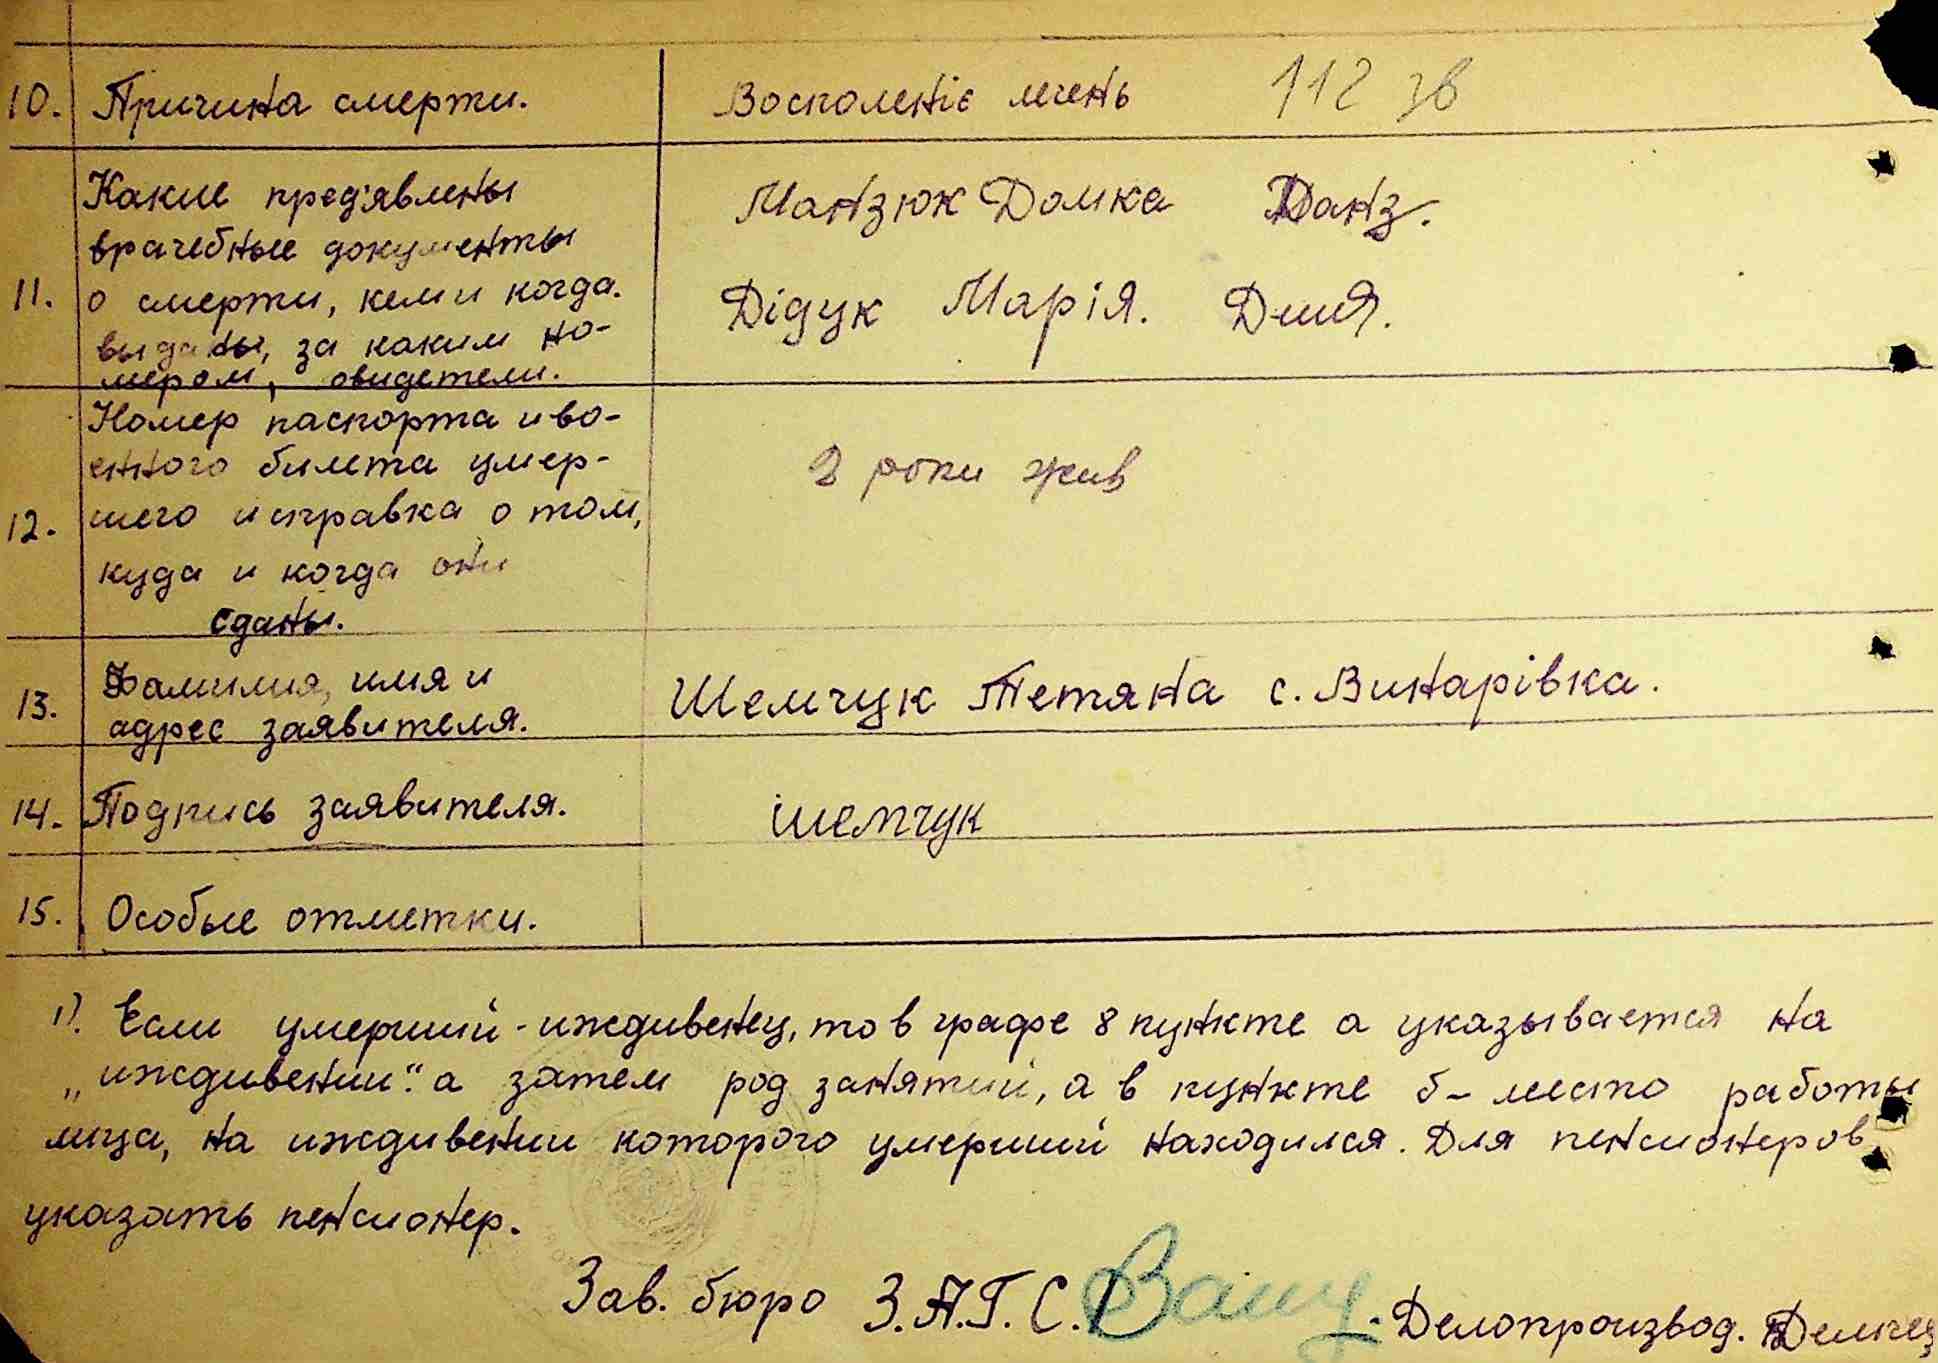 10. Причина смерти. Восполеніє легень 112 зв
Какие пред'явлены
врачебные документы
11. о смерти, кем и когда.
выданы, за каким но-
мером, свидетели.
Манзюк Домка
Дідук Марія.
Номер паспорта и во-
енного билета умер-
12. шего и справка о том,
куда и когда они
сданы.
2 роки жив
13. Фамилия, имя и
адрес заявителя.
Шемчук Тетяна с. Винарівка.
14. Подпись заявителя. шемчук
15. Особые отметки.
1). Если умерший - иждивенец, то в графе 8 пункте а указывается на
„иждивении". а затем род занятий, а в пункте б - место работы
лица, на иждивении которого умерший находился. Для пенсионеров
указать пенсионер.
Зав. бюро З.А.Г.С. Делопроизвод.